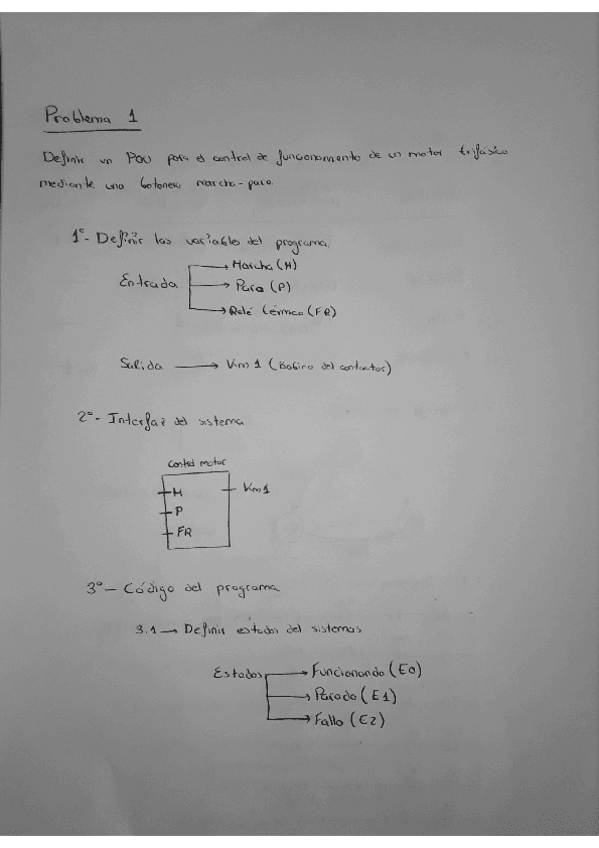 Problema 1
Definir un POU para el control de funcionamiento de un motor trifásico
mediante una botonera marcha-paro.
1º- Definir las variable del programa.
Entrada
Marcha (M)
Para (P)
Relé térmico (FR)
Salida → Km1 (Bobina del contactor)
2º- Interfaz del sistema
Control motor
M
P
FR
Km1
3º- Código del programa
3.1 → Definir estados del sistemas
Estados
Funcionando (E0)
Parado (E1)
Fallo (E2)